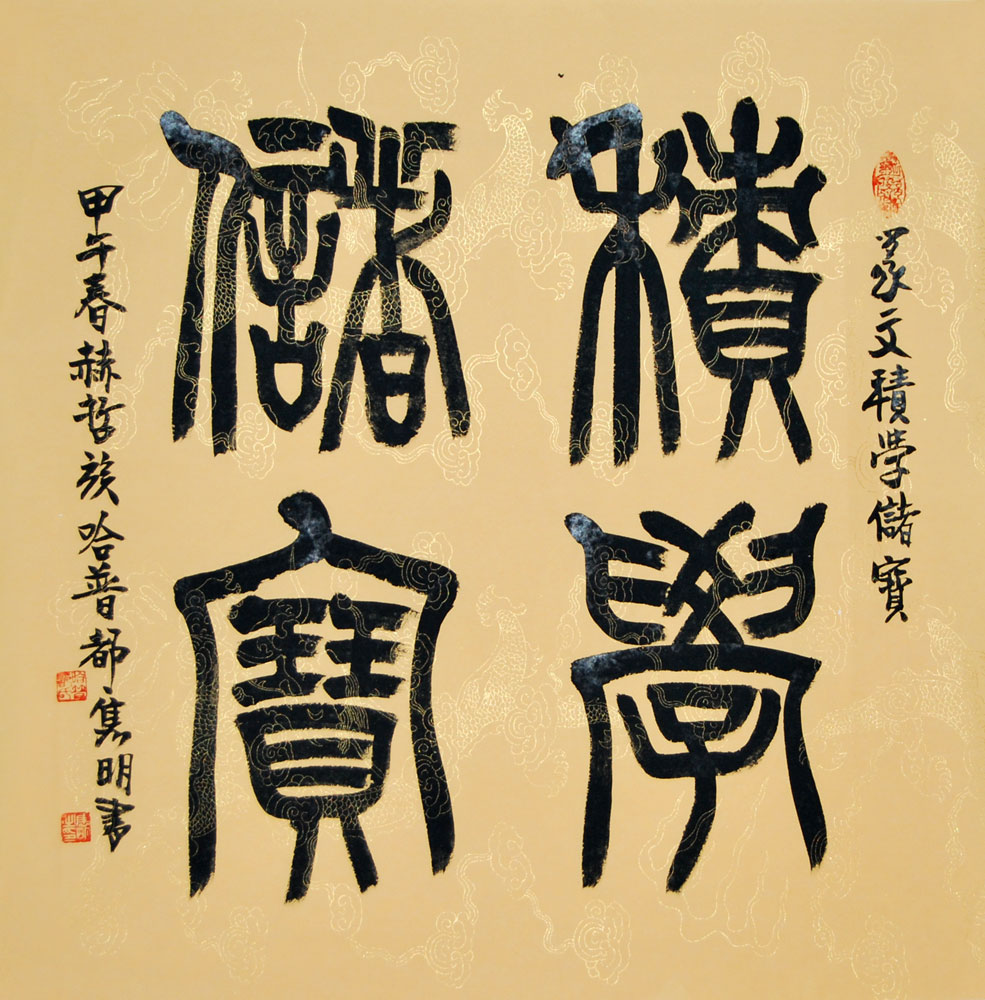 篆文積學儲寶
積學
儲寶
甲午春赫哲族哈普都隽明書